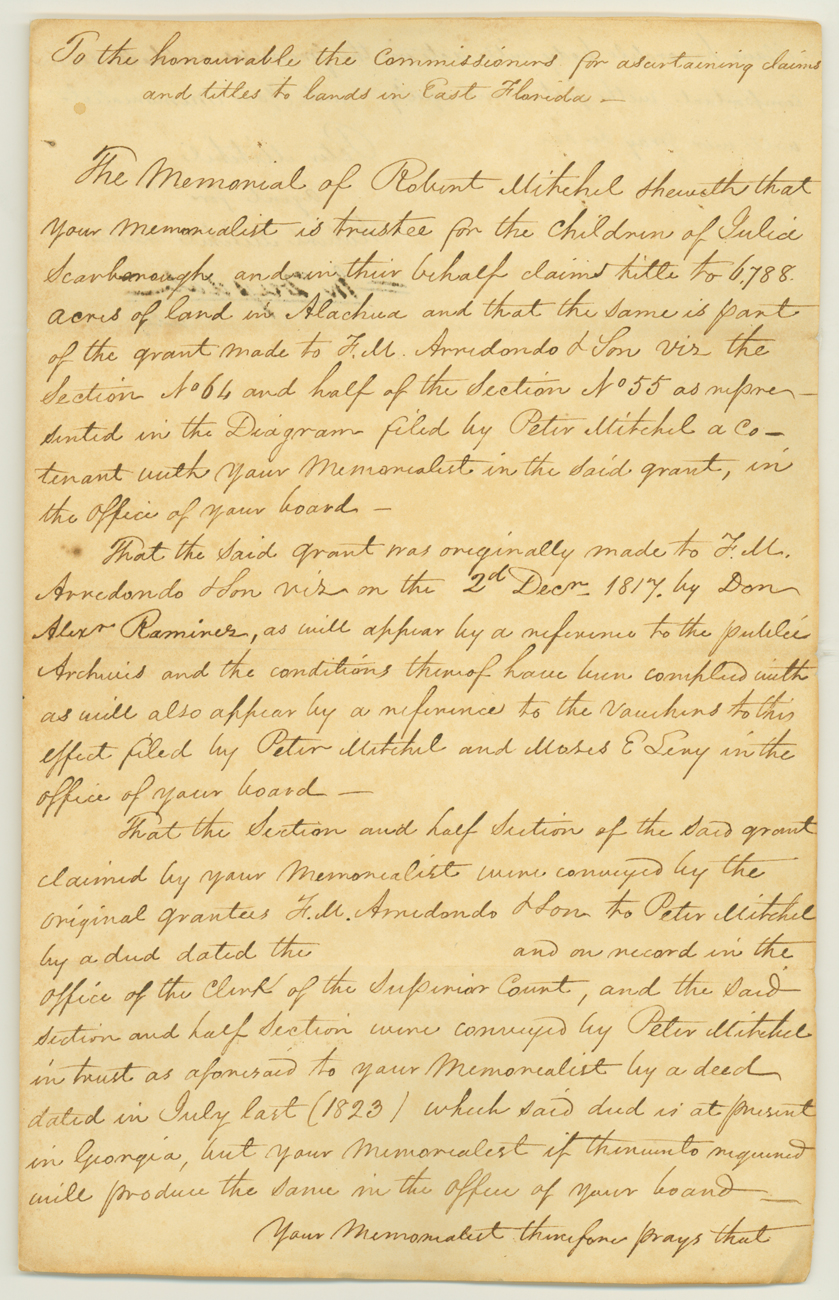 To the honourable the Commissioners for ascertaining claims
and titles to lands in East Florida —
The Memorial of Robert Mitchel sheweth that
your memorialist is trustee for the children of Julia
Scarborough, and in their behalf claims title to 6,788
acres of land in Alachua and that the same is part
of the grant made to F. M. Arredondo & Son viz the
Section No 64 and half of the Section No 55 as repre-
sented in the Diagram filed by Peter Mitchel a co-
tenant with your Memorialist in the said grant, in
the office of your board —
That the said grant was originally made to F. M.
Arredondo & Son viz on the 2d Decr 1817. by Don
Alexr Ramirez, as will appear by a reference to the public
Archives and the conditions thereof have been complied with
as will also appear by a reference to the Vouchers to this
effect filed by Peter Mitchel and Moses E Levy in the
office of your board —
That the Section and half Section of the said grant
claimed by your Memorialist were conveyed by the
original grantees F. M. Arredondo & Son to Peter Mitchel
by a deed dated the and on record in the
office of the Clerk of the Superior Court, and the said
section and half Section were conveyed by Peter Mitchel
in trust as aforesaid to your Memorialist by a deed
dated in July last (1823) which said deed is at present
in Georgia, but your Memorialist if thereunto required
will produce the same in the office of your board —
Your Memorialist therefore prays that